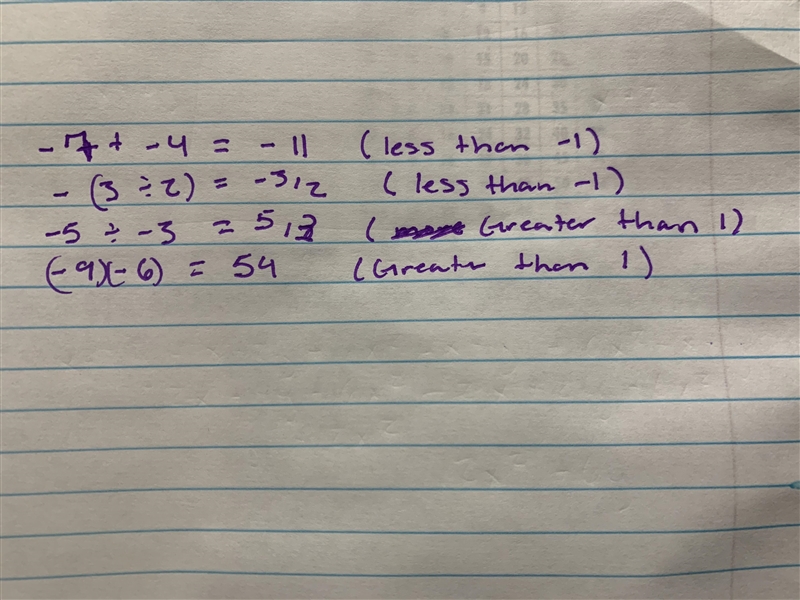 -7 + -4 = -11 (less than -1)
-(3 ÷ 2) = -3/2 (less than -1)
-5 ÷ -3 = 5/3 (Greater than 1)
(-9)(-6) = 54 (Greater than 1)